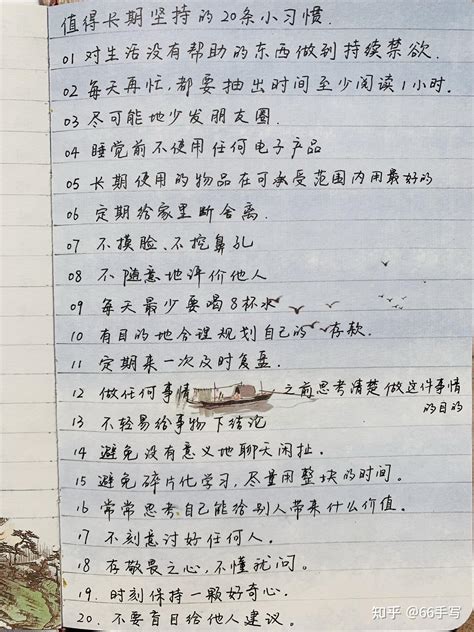 值得长期坚持的20条小习惯.
01 对生活没有帮助的东西做到持续禁欲.
02 每天再忙,都要抽出时间至少阅读1小时.
03 尽可能地少发朋友圈.
04 睡觉前不使用任何电子产品
05 长期使用的物品在可承受范围内用最好的
06 定期给家里断舍离.
07 不摸脸、不挖鼻孔
08 不随意地评价他人
09 每天最少要喝8杯水
10 有目的地合理规划自己的存款.
11 定期来一次及时复盘.
12 做任何事情之前思考清楚做这件事情
的目的
13 不轻易给事物下结论
14 避免没有意义地聊天闲扯.
15 避免碎片化学习,尽量用整块的时间.
16 常常思考自己能给别人带来什么价值.
17 不刻意讨好任何人.
18 存敬畏之心,不懂就问.
19. 时刻保持一颗好奇心.
20. 不要盲目给他人建议.
知乎 @66手写